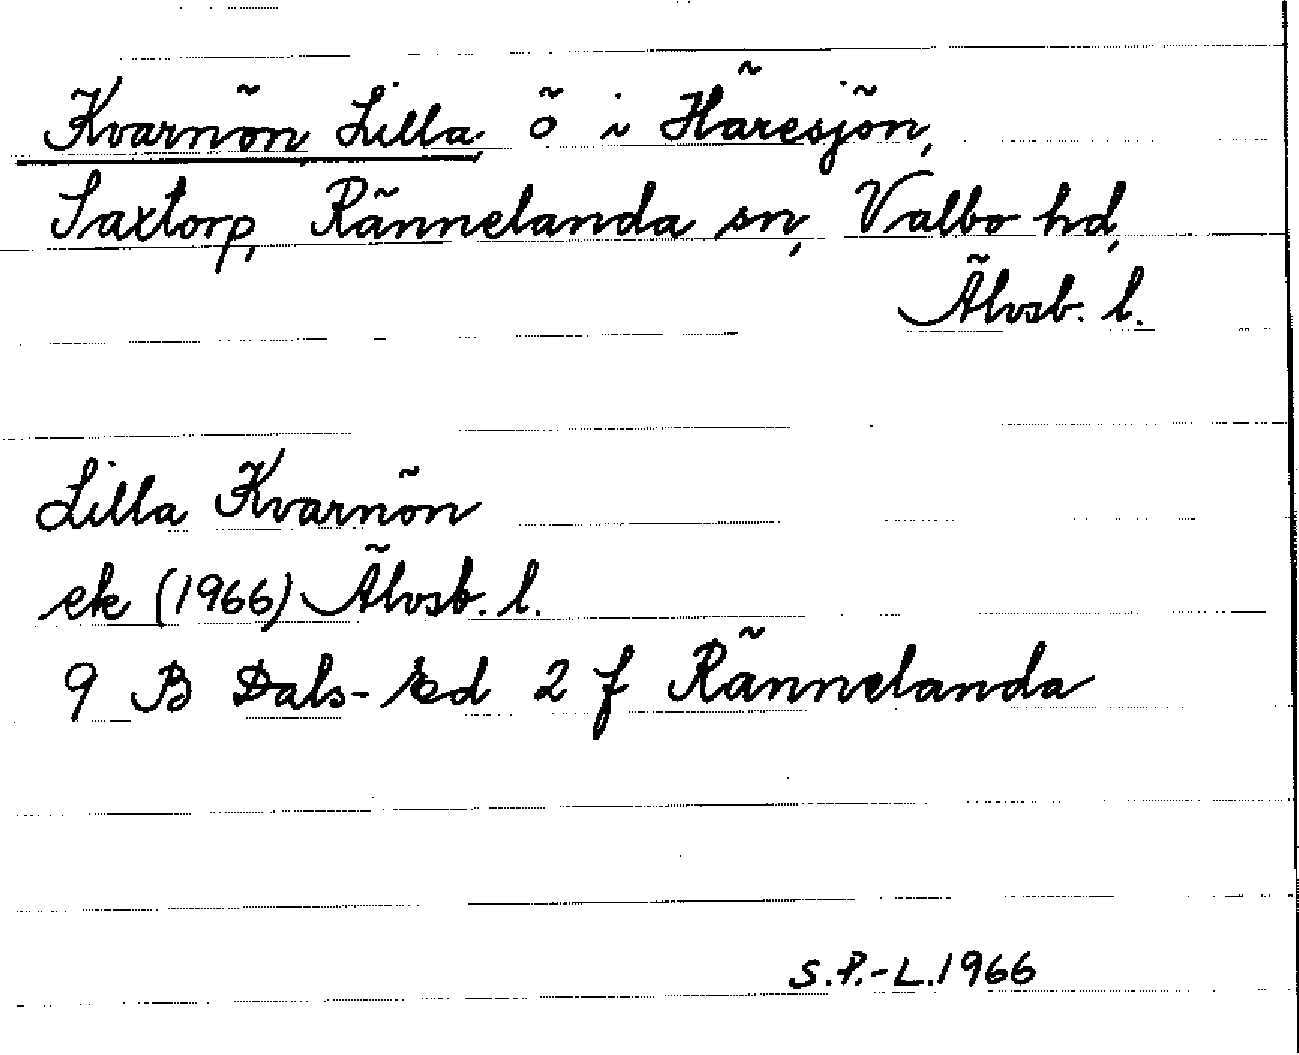 Kvarnön, Lilla, ö i Häresjön,
Saxtorp, Rännelanda sn, Valbo hd,
Älvsb. l.
Lilla Kvarnön
ek (1966) Älvsb. l.
9 B Dals-Ed 2 f Rännelanda
S.P.-L.1966